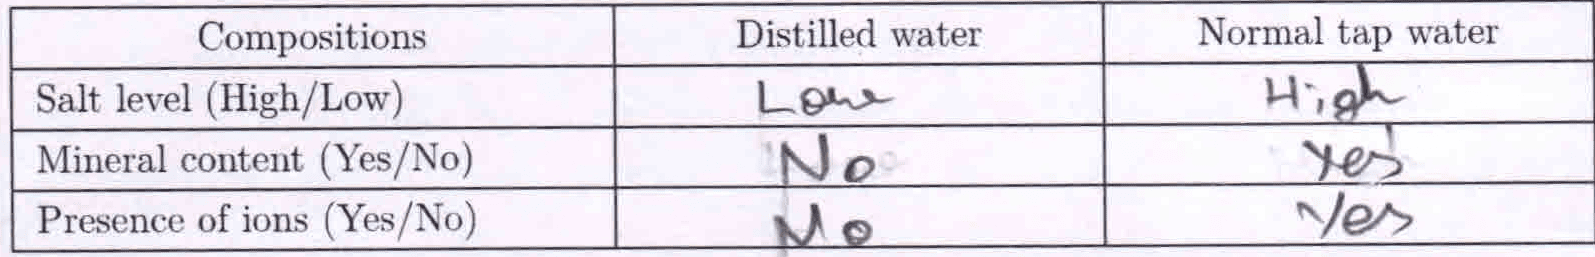 Compositions Distilled water Normal tap water
Salt level (High/Low) Low High
Mineral content (Yes/No) No Yes
Presence of ions (Yes/No) No Yes